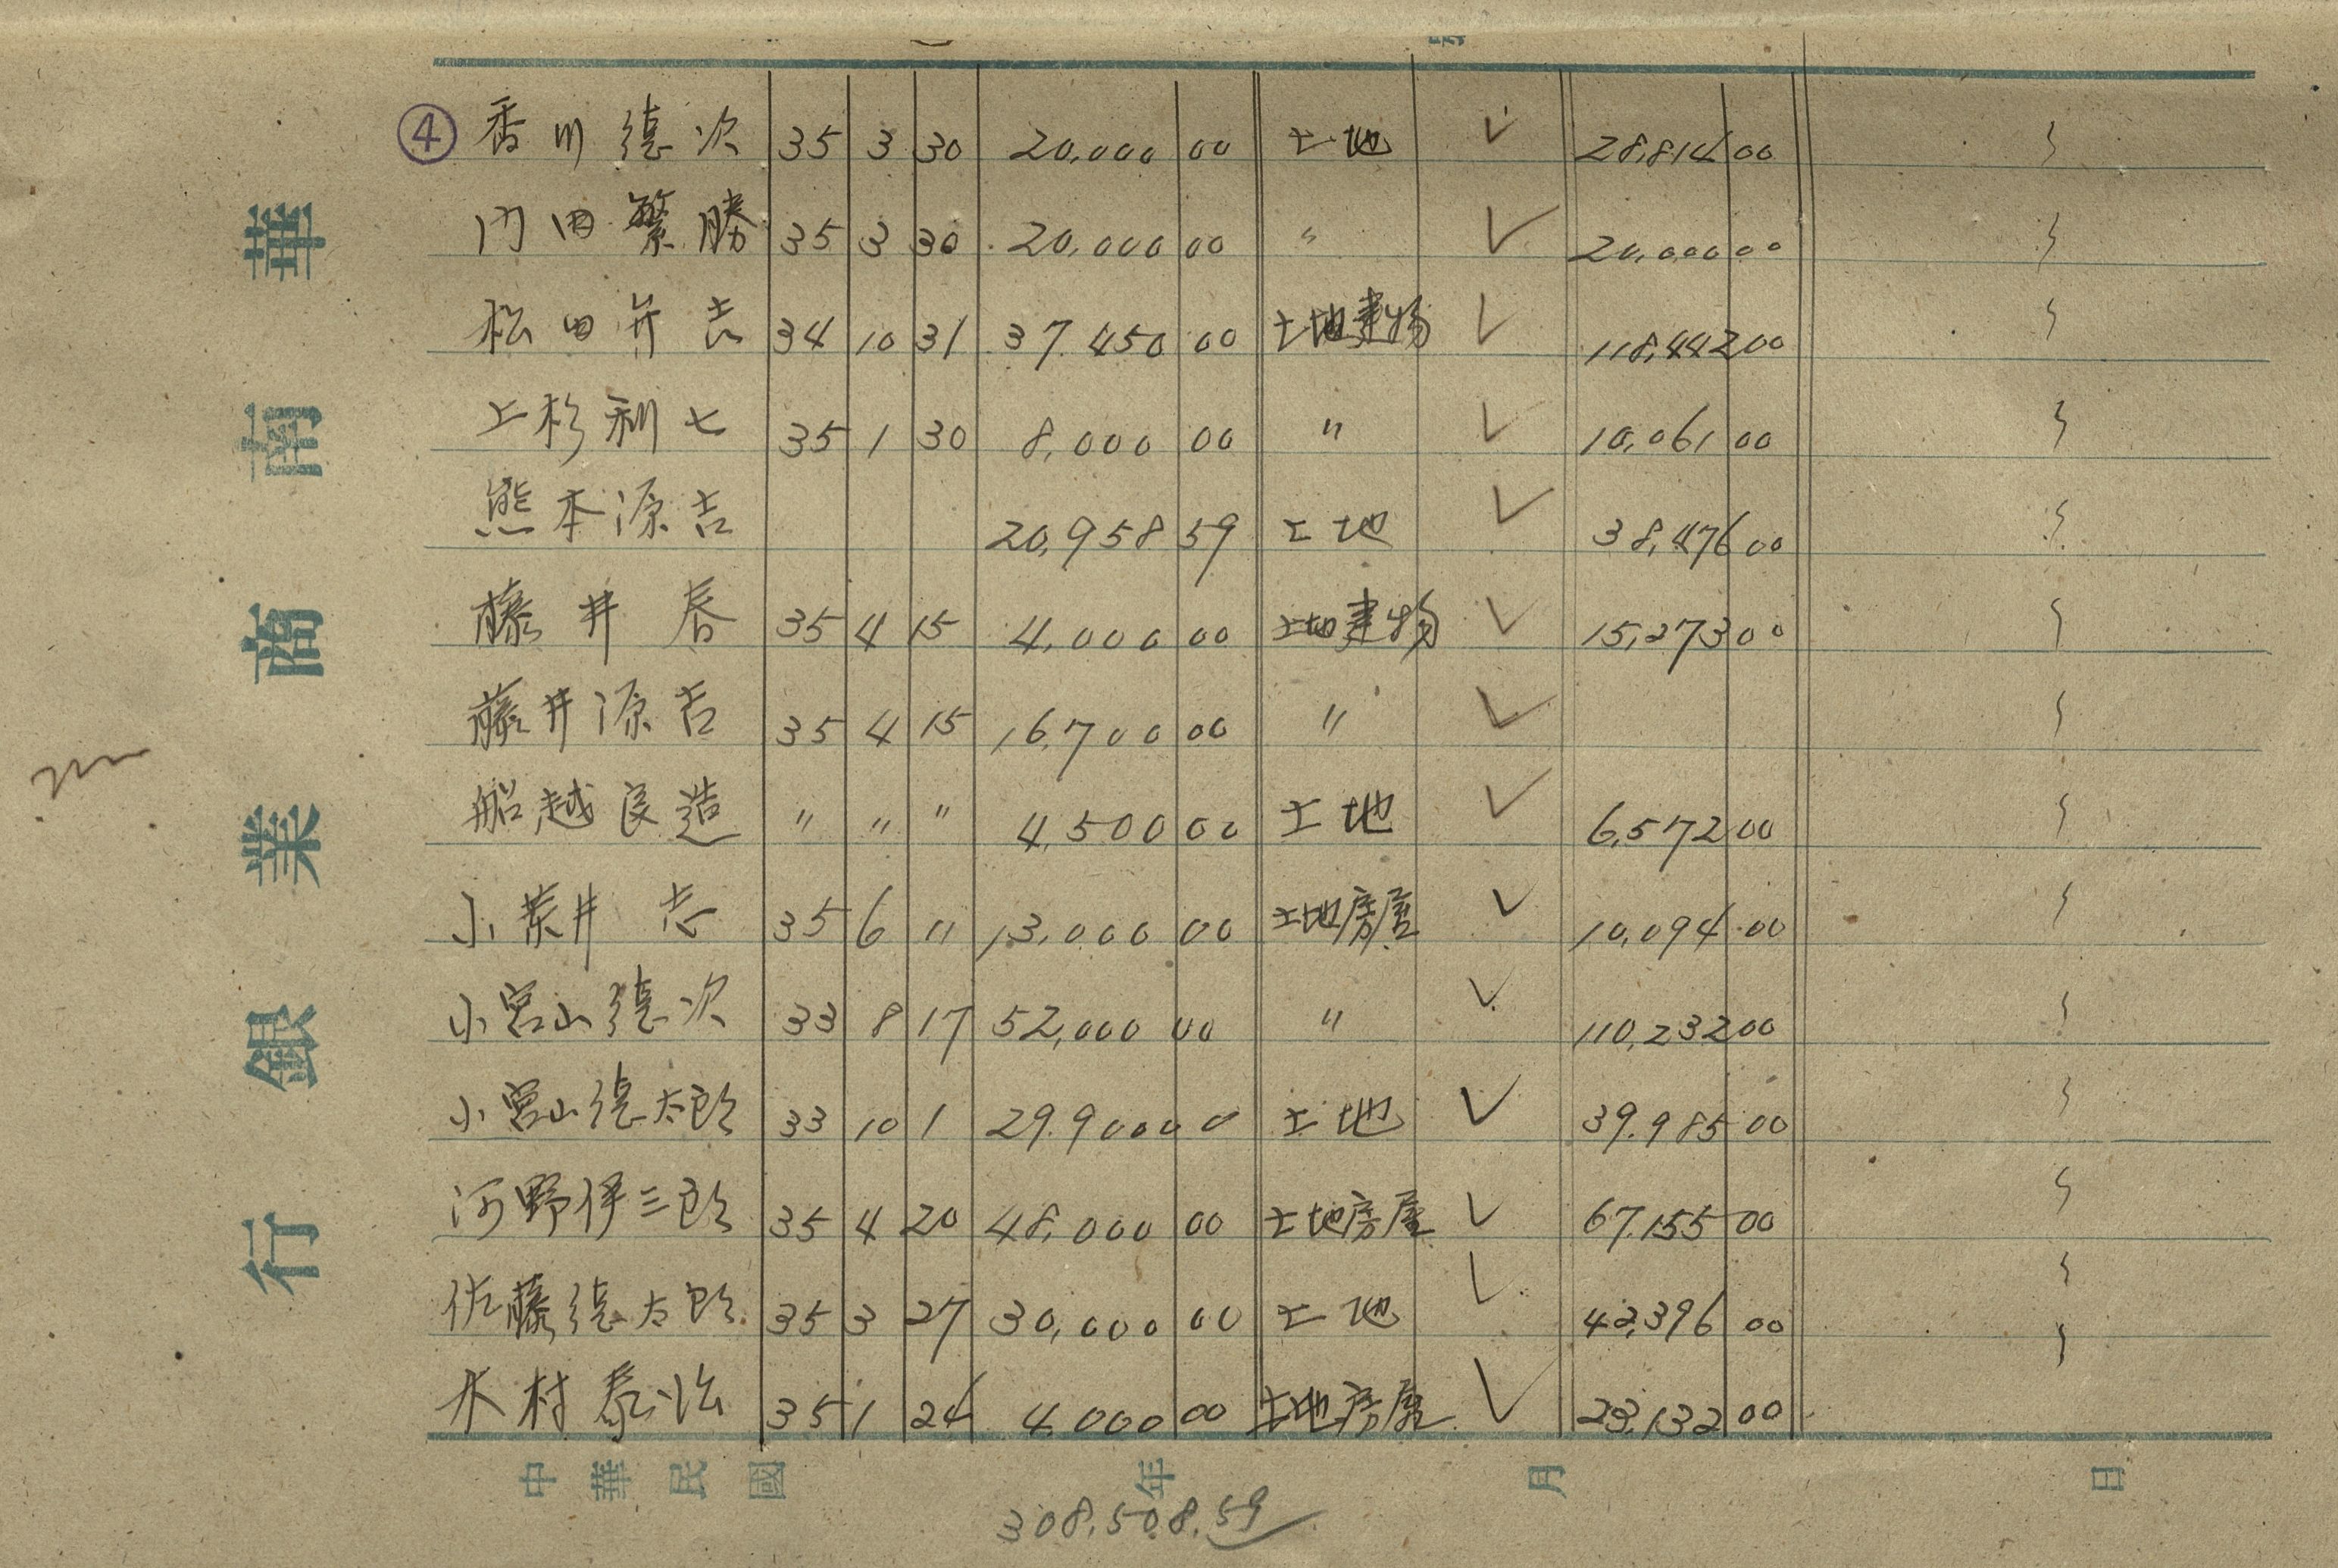 ④ 香川德次 35 3 30 20,000 00 土地 ✓ 28,814 00
内田繁勝 35 3 30 20,000 00 〃 ✓ 20,000 00
松田弁吉 34 10 31 37.450 00 土地建物 ✓ 118,442 00
上杉利七 35 1 30 8,000 00 〃 ✓ 10,061 00
熊本源吉 20,958 59 土地 ✓ 38,476 00
藤井春 35 4 15 4,000 00 土地建物 ✓ 15,273 00
藤井源吉 35 4 15 16,700 00 〃 ✓
船越良造 〃 〃 〃 4,500 00 土地 ✓ 6,572 00
小荒井志 35 6 11 13,000 00 土地房屋 ✓ 10,094 00
小宮山德次 33 8 17 52,000 00 〃 ✓ 110,232 00
小宮山德太郎 33 10 1 29.900 00 土地 ✓ 39.985 00
河野伊三郎 35 4 20 48,000 00 土地房屋 ✓ 67,155 00
佐藤德太郎 35 3 27 30,000 00 土地 ✓ 42,396 00
木村泰治 35 1 24 4,000 00 土地房屋 ✓ 23,132 00
中華民國 年 月 日
308,508.59
華南商業銀行